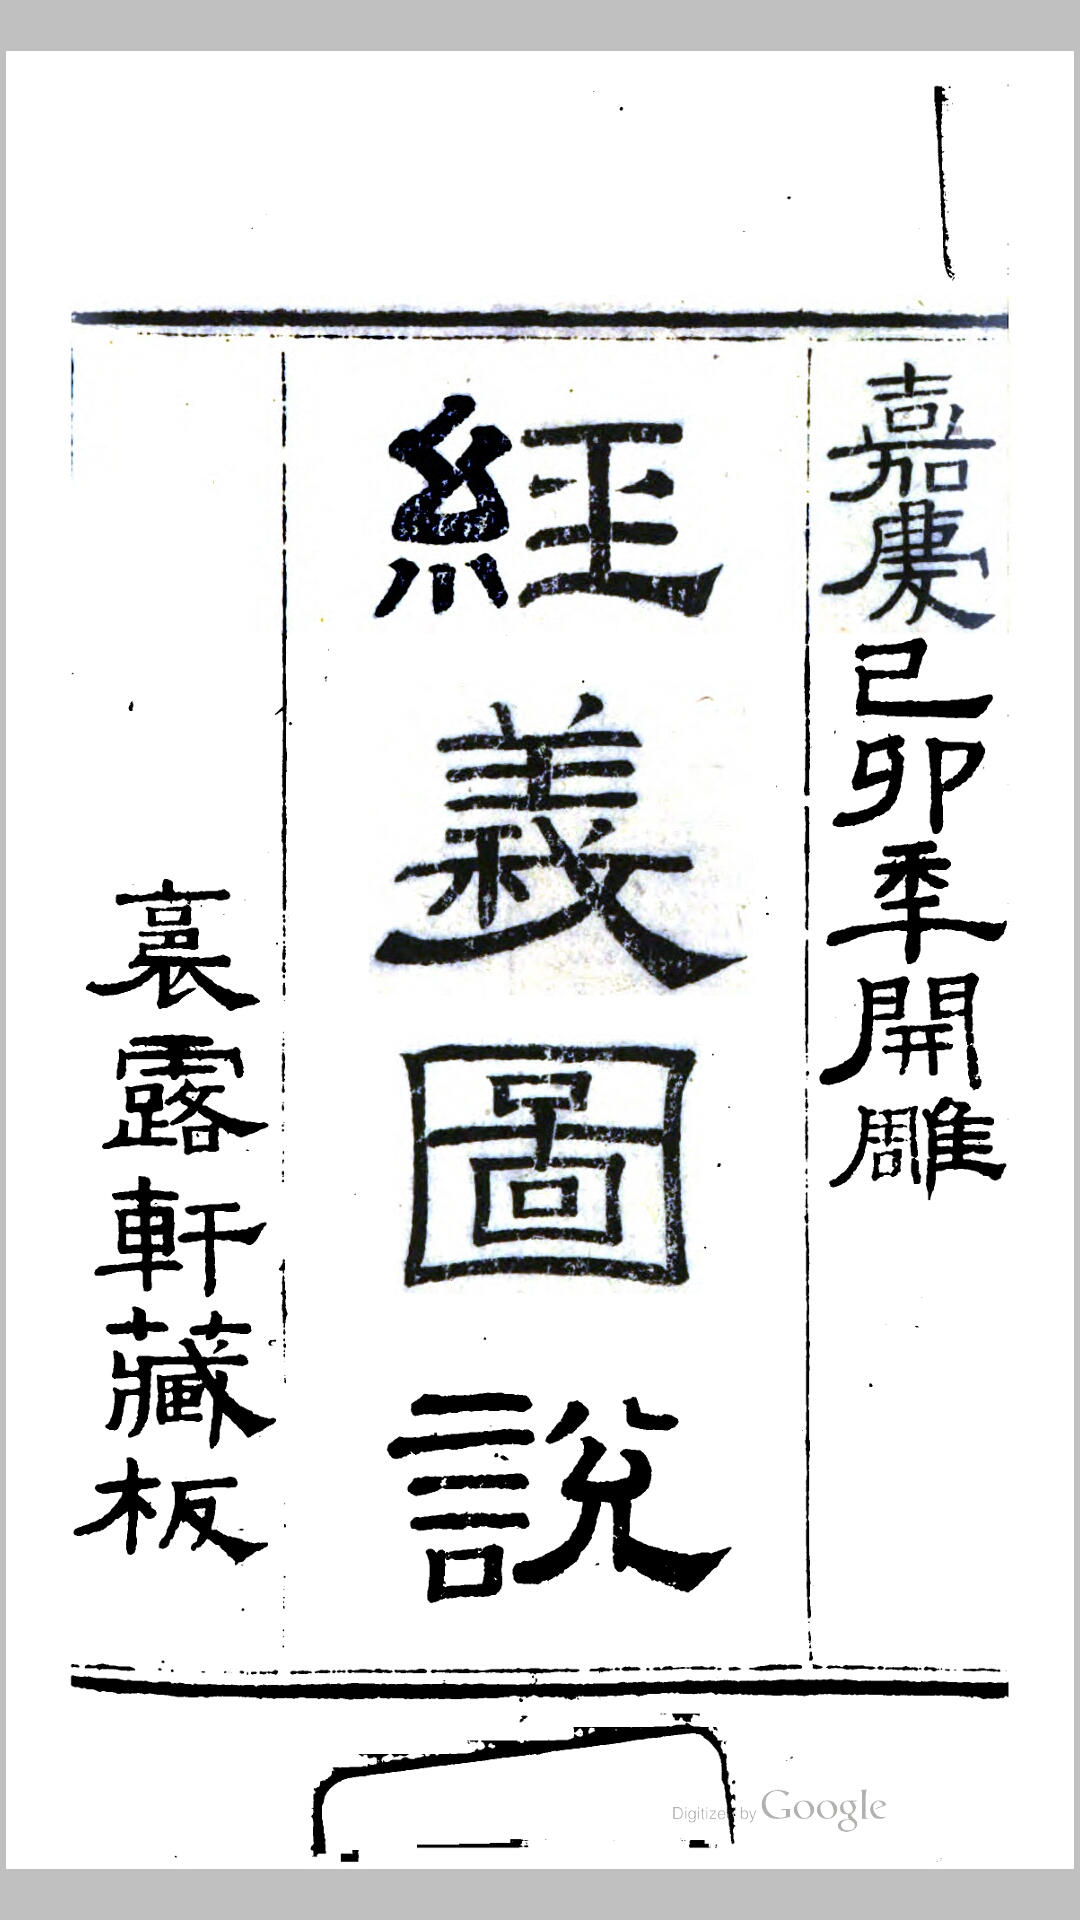 嘉慶己卯季開雕
經義圖說
裛露軒藏板
Digitized by Google